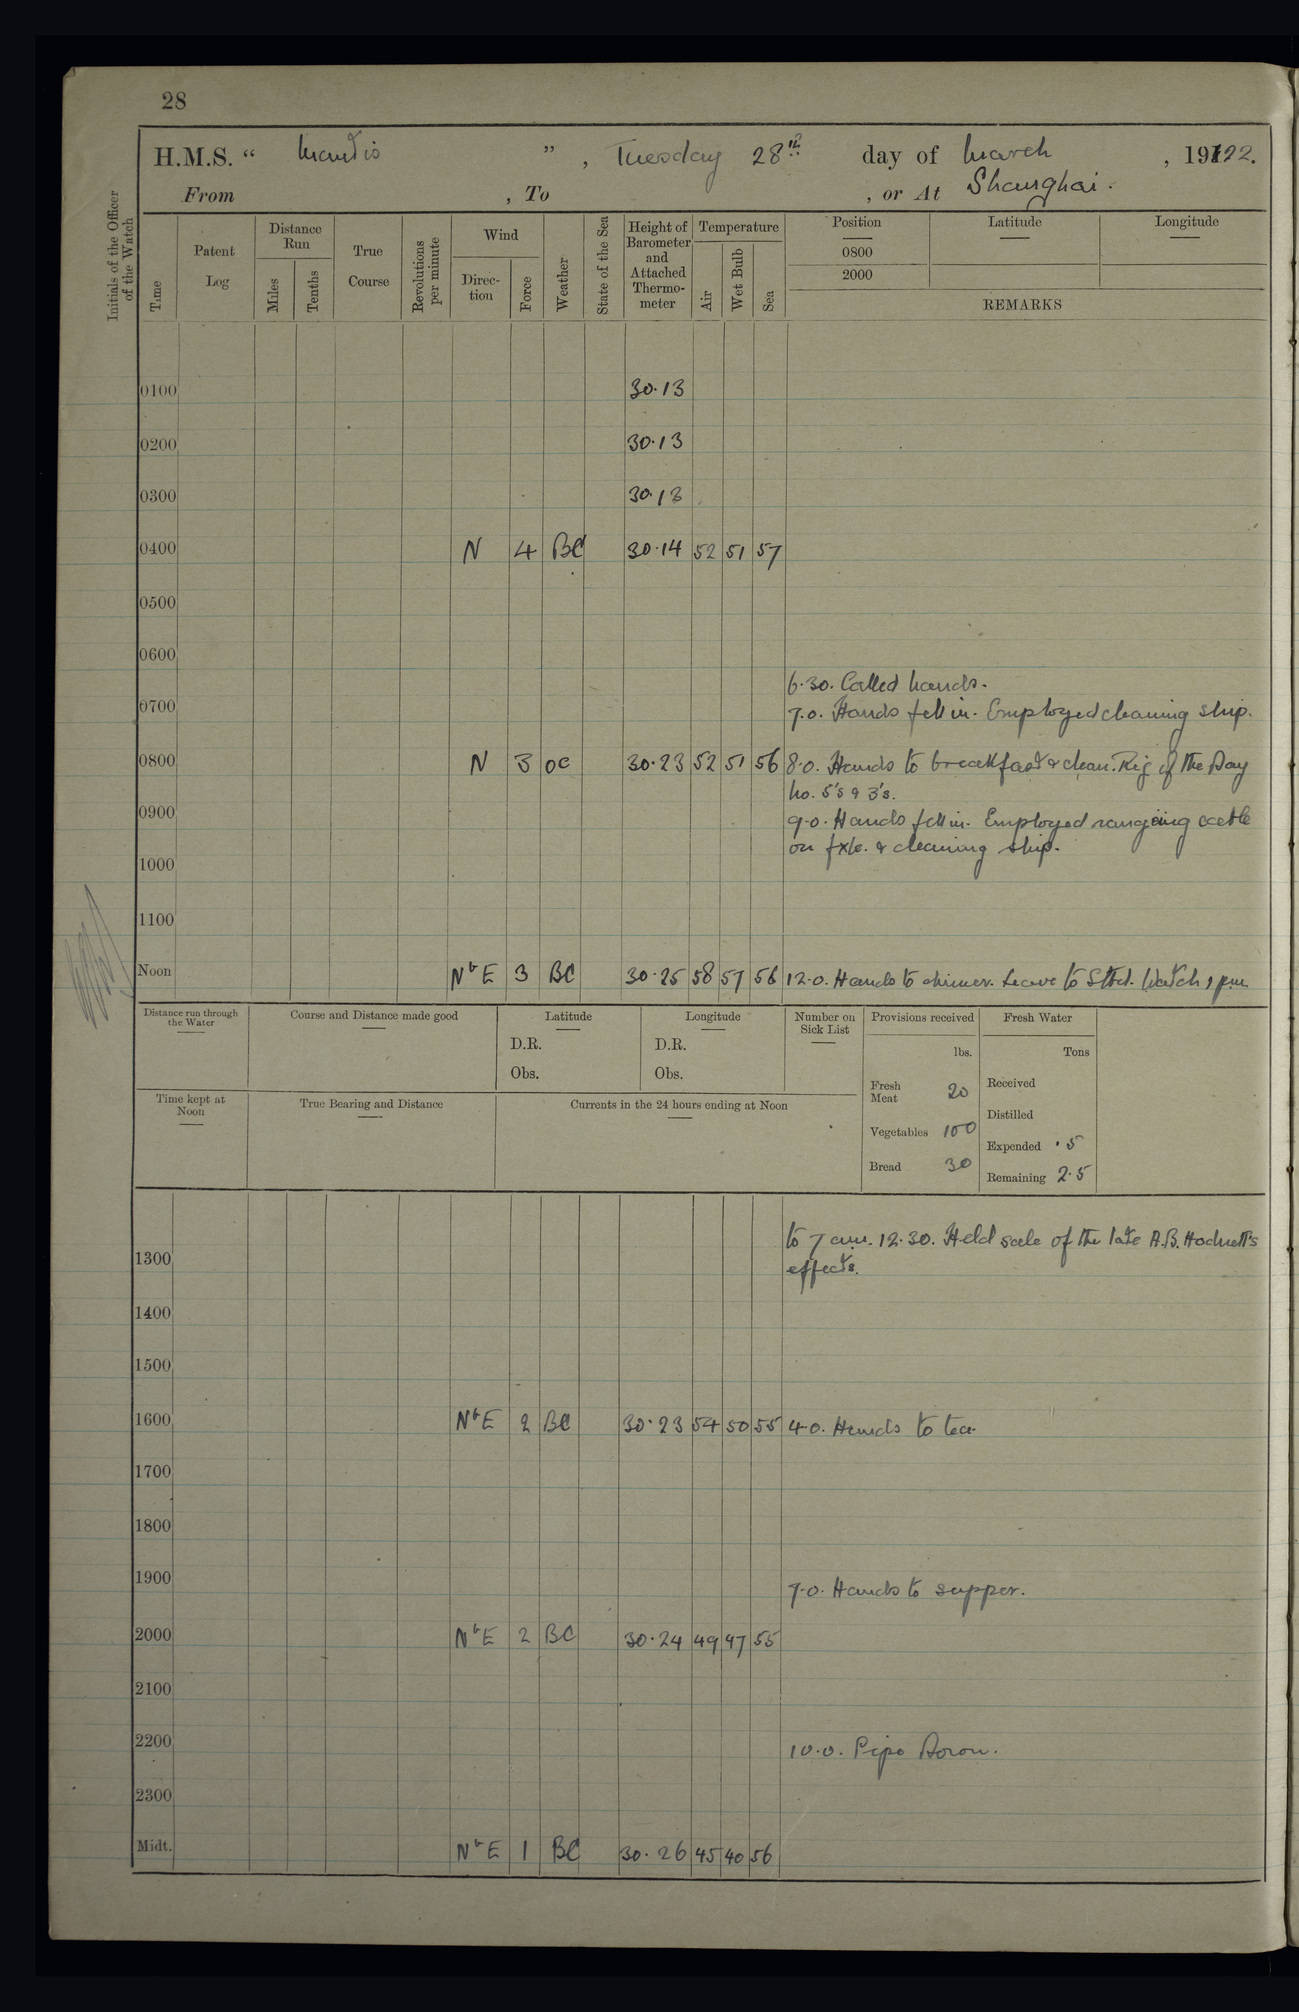 28
H.M.S. “ Mantis ” , Tuesday 28th day of March , 1922.
From , To , or At Shanghai.
Initials of the Officer of the Watch
Time
Patent Log
Distance Run
Miles
Tenths
True Course
Revolutions per minute
Wind
Direction
Force
Weather
State of the Sea
Height of Barometer and Attached Thermometer
Temperature
Air
Wet Bulb
Sea
Position Latitude Longitude
0800
2000
REMARKS
0100 30.13
0200 30.13
0300 30.13
0400 N 4 BC 30.14 52 51 57
0500
0600
6.30. Called hands.
0700 7.0. Hands fell in. Employed cleaning ship.
0800 N 3 OC 30.23 52 51 56 8.0. Hands to breakfast & clean. Rig of the Day
No. 5's & 3's.
0900 9.0. Hands fell in. Employed rangeing cable
on fxle. & cleaning ship.
1000
1100
Noon NbE 3 BC 30.25 58 57 56 12.0. Hands to dinner. Leave to Stbd. Watch 1 pm
Distance run through the Water
Course and Distance made good
Latitude
D.R.
Obs.
Longitude
D.R.
Obs.
Number on Sick List
Provisions received
lbs.
Fresh Meat 20
Vegetables 100
Bread 30
Fresh Water
Tons
Received
Distilled
Expended .5
Remaining 2.5
Time kept at Noon
True Bearing and Distance
Currents in the 24 hours ending at Noon
to 7 am. 12.30. Held sale of the late A.B. Hodnett's
1300 effects.
1400
1500
1600 NbE 2 BC 30.23 54 50 55 4.0. Hands to tea.
1700
1800
1900 7.0. Hands to supper.
2000 NbE 2 BC 30.24 49 47 55
2100
2200 10.0. Pipe Down.
2300
Midt. NbE 1 BC 30.26 45 40 56